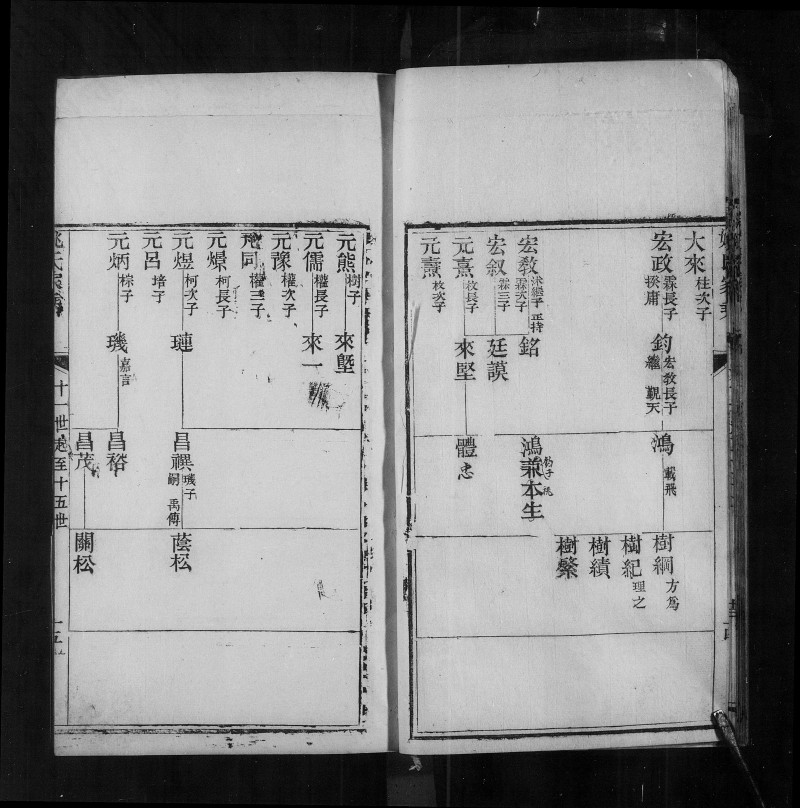 大來 柱次子
宏政 霖長子 揆庸
鈞 宏教長子 繼 觀天
鴻 載飛
樹綱 方為
樹紀 理之
樹績
樹繁
宏教 霖次子 正持
銘
鴻兼本生
宏叙 霖三子
廷謨
元熹 枚長子
來堅
體忠
元燾 枚次子
元熊 樹子
來塈
元儒 權長子
來一
元豫 權次子
元同 權三子
元燝 柯長子
元煜 柯次子
璉
昌禩 璣子 嗣 禹傳
蔭松
元呂 培子
元炳 棕子
璣 嘉言
昌裕
昌茂
關松
十一世起至十五世